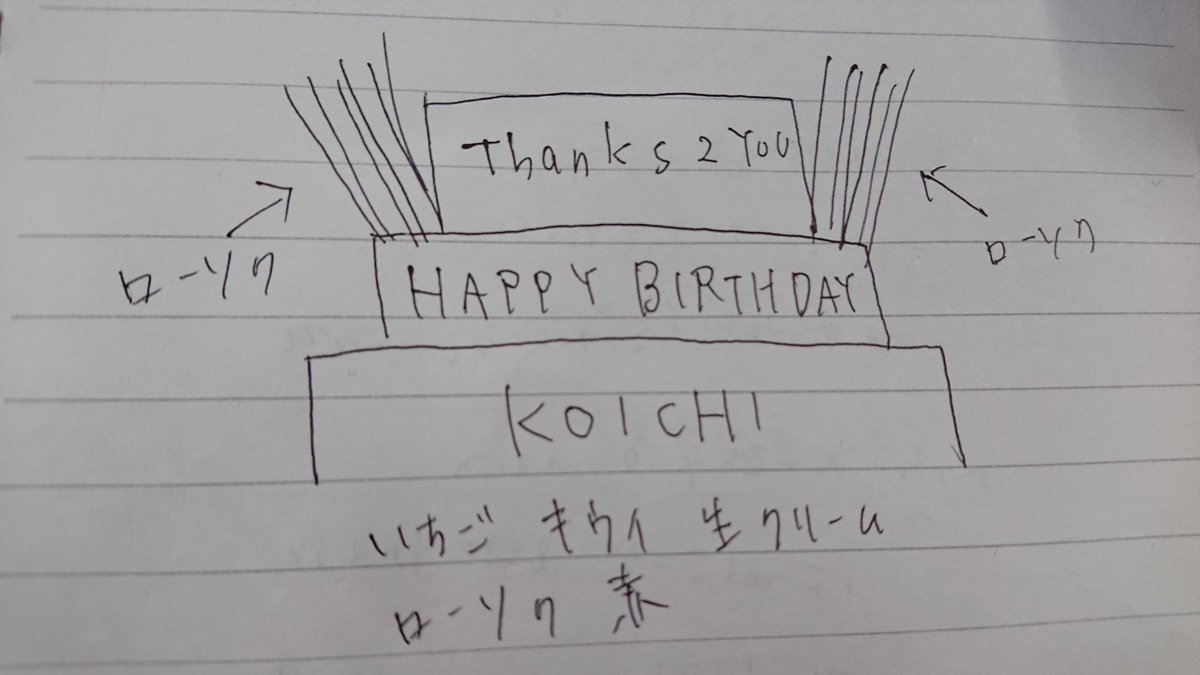 Thanks 2 YOU
ローソク
ローソク
HAPPY BIRTHDAY
KOICHI
いちご キウイ 生クリーム
ローソク 赤